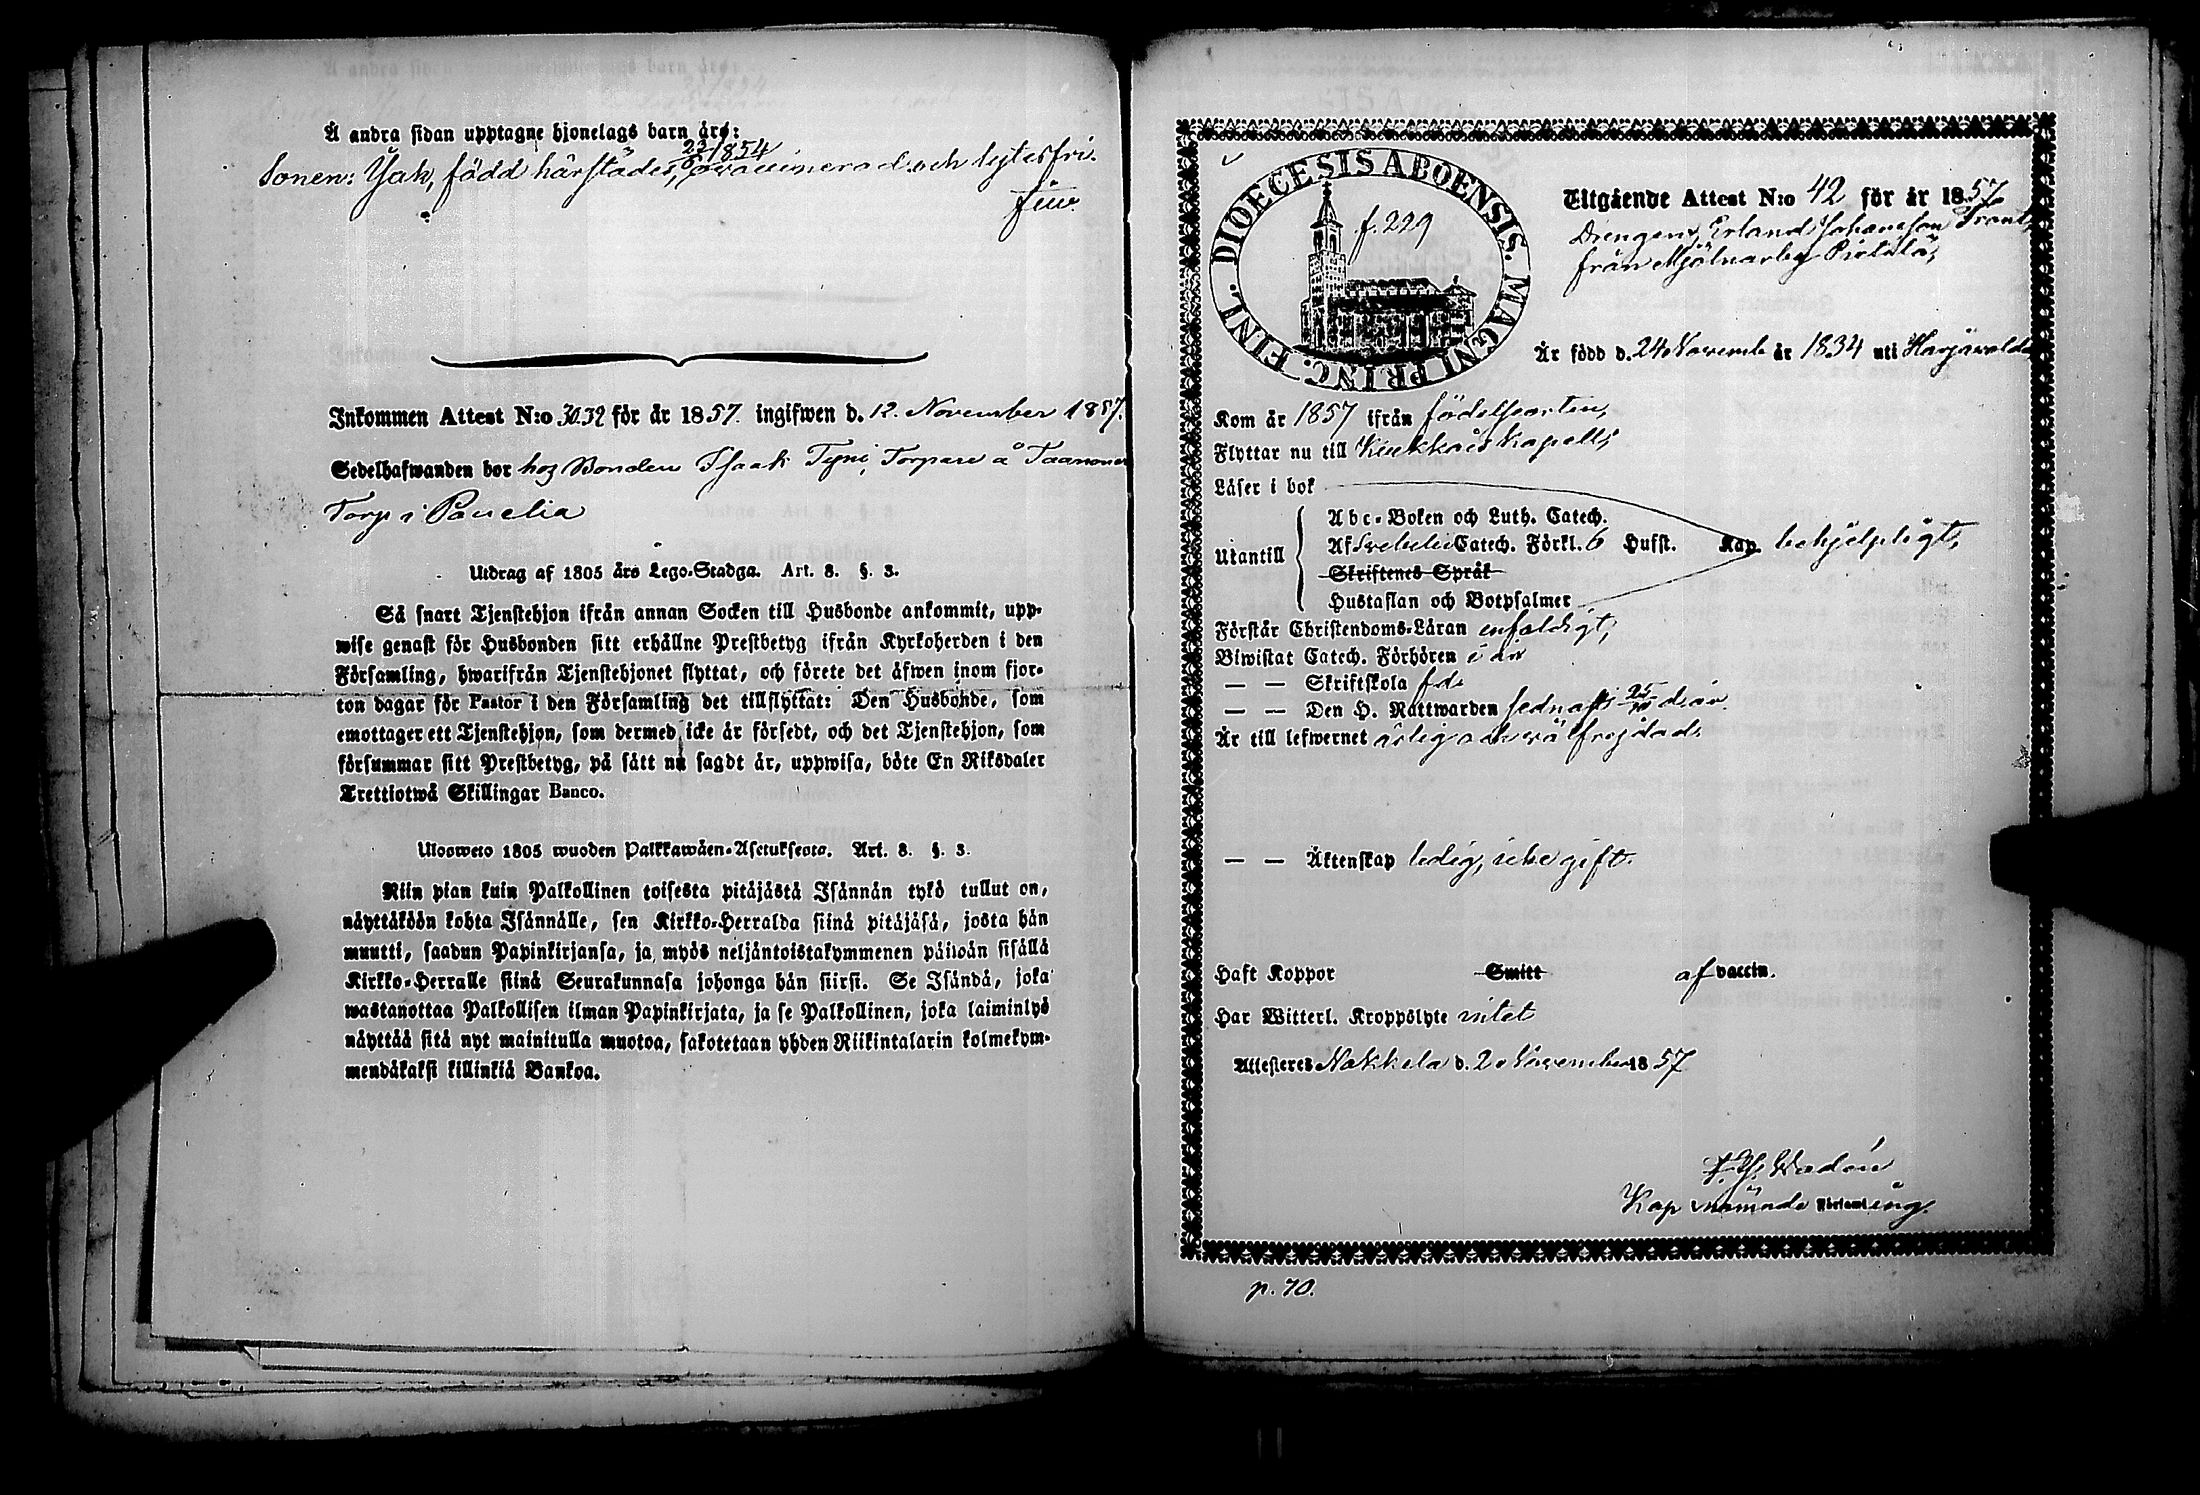 Å andra sidan upptagne hjonelags barn äro:
Sonen: Isak, född härstädes, 23/6 1854 vaccinerad och lytesfri.
Inkommen Attest N:o 30.32 för år 1857. ingifwen d. 12. November 1857.
Sedelhafwanden bor hos Bonden Isaak Tyni, Torpare å Taanonen
Torp i Panelia
Utdrag af 1805 års Lego-Stadga. Art. 8. §. 3.
Så snart Tjenstehjon ifrån annan Socken till Husbonde ankommit, upp-
wise genast för Husbonden sitt erhållne Prestbetyg ifrån Kyrkoherden i den
Församling, hwarifrån Tjenstehjonet flyttat, och förete det äfwen inom fjor-
ton dagar för Pastor i den Församling det tillflyttat: Den Husbonde, som
emottager ett Tjenstehjon, som dermed icke är försedt, och det Tjenstehjon, som
försummar sitt Prestbetyg, på sätt nu sagdt är, uppwisa, böte En Riksdaler
Trettiotwå Skillingar Banco.
Uloswето 1805 wuoden Palkkawäen-Asetuksesta. Art. 8. §. 3.
Niin pian kuin Palkollinen toisesta pitäjästä Isännän tykö tullut on,
näyttäköön kohta Isännälle, sen Kirkko-Herralda siinä pitäjäsä, josta hän
muutti, saadun Papinkirjansa, ja myös neljäntoistakymmenen päiwän sisällä
Kirkko-Herralle siinä Seurakunnasa johonga hän siirsi. Se Isändä, joka
wastanottaa Palkollisen ilman Papinkirjata, ja se Palkollinen, joka laiminlyö
näyttää sitä nyt mainitulla muotoa, sakotetaan yhden Riikintalarin kolmekym-
mendäkaksi killinkiä Bankoa.
DIOECESIS ABOENSIS. MAGNI PRINC. FINL.
f. 229
Utgående Attest N:o 42 för år 1857.
Drengen, Erland Johansson Frant,
från Mjölnarby Pietilä,
Är född d. 24 Novemb år 1834 uti Harjavalda
Kom år 1857 ifrån födelseorten,
Flyttar nu till Kiukkais Kapell;
Läser i bok
Abc-Boken och Luth. Catech.
Utantill Af Svebelii Catech. Förkl. 6 Hufst. Kap. behjelpligt,
Skriftenes Språk
Hustaflan och Botpsalmer
Förstår Christendoms-Läran enfaldigt;
Biwistat Catech. Förhören i år
— — Skriftskola f.d.
— — Den H. Nattwarden sednast 25/10 d:år.
Är till lefwernet ärlig och välfrejdad.
— — Äktenskap ledig, icke gift.
Haft Koppor Smitt af vaccin.
Har Witterl. Kroppslyte intet
Attesteras Nakkila d. 2 November 1857
Kap i nämnde Församling.
p. 70.